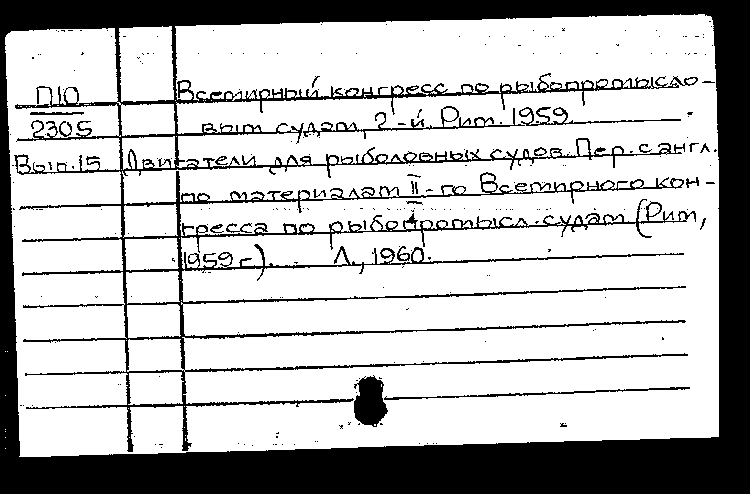 П10 Всемирный конгресс по рыбопромысло-
2305 вым судам, 2-й. Рим. 1959.
Вып.15 Двигатели для рыболовных судов. Пер. с англ.
по материалам II-го Всемирного кон-
гресса по рыбопромысл. судам (Рим,
1959 г.). Л., 1960.